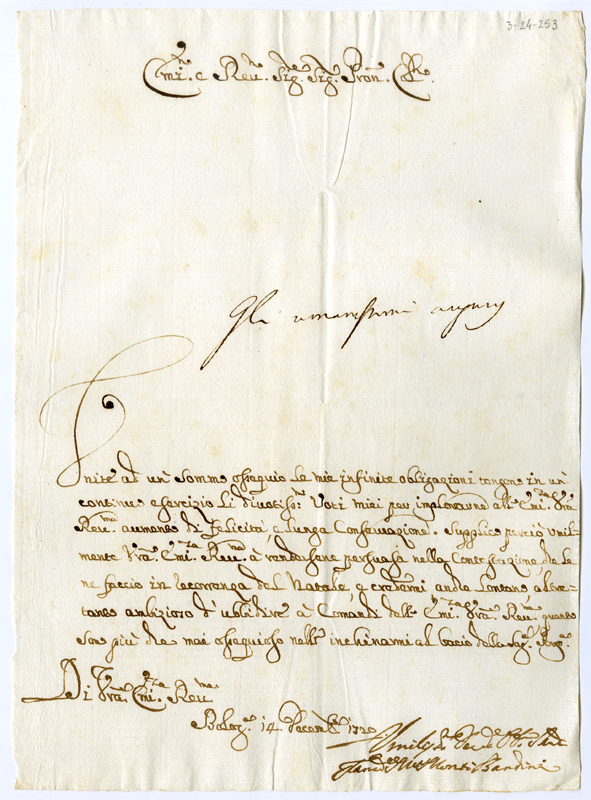 3-24-253
Emi. e Reu. Sig. Sig. Pron. Col.
Gli umanissimi augurj
Unite ad un' sommo ossequio le mie infinite obligazioni tengono in un'
continuo esercizio li diuotiss: Voti miei per implorarne all' Em. Vra.
Reu.ma aumento di Felicità e lunga Conseruazione. Supplico perciò umil-
mente Vra. Emi. Reu.ma à rendersene persuasa nella Contestazione che le
ne faccio in occorrenza del Natale, e credermi anche lontano altre-
tanto ambizioso d' ubbidire à Comandi dell' Emza. Vra. Reu.ma quanto
son più che mai ossequioso nell' inchinarmi al bacio della Sag. Porp.
Di Vra. Emi. Reu.
Bolog.a 14 Decemb. 1720
Bandini